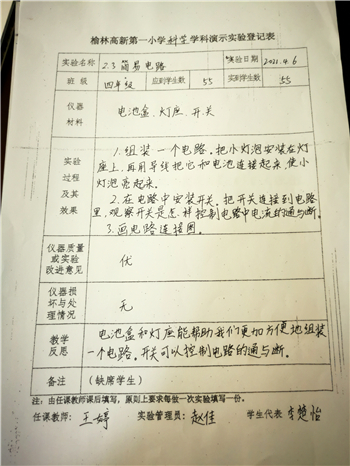 榆林高新第一小学科学学科演示实验登记表
实验名称 2.3 简易电路 实验日期 2021.4.6
班 级 四年级 应到学生数 55 实到学生数 55
仪器
材料
电池盒、灯座、开关
实验
过程
及其
效果
1.组装一个电路。把小灯泡安装在灯
座上,再用导线把它和电池连接起来,使小
灯泡亮起来。
2.在电路中安装开关。把开关连接到电路
里,观察开关是怎样控制电路中电流的通与断。
3.画电路连接图。
仪器质量
或实验
改进意见
优
仪器损
坏与处
理情况
无
教学
反思
电池盒和灯座能帮助我们更加方便地组装
一个电路。开关可以控制电路的通与断。
备注 (缺席学生)
注:由任课教师课后填写,原则上要求每做一次实验填写一份。
任课教师: 王婷 实验管理员: 赵佳 学生代表 李楚怡